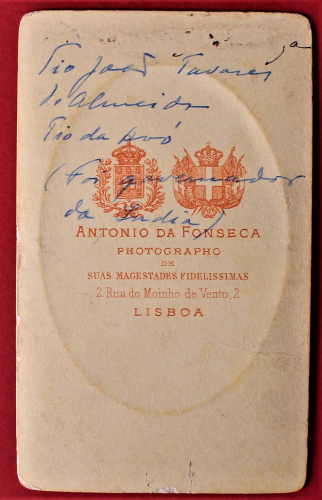 Tio João Tavares
d'Almeida
Tio da Avó
(Foi governador
da India)
ANTONIO DA FONSECA
PHOTOGRAPHO
DE
SUAS MAGESTADES FIDELISSIMAS
2 Rua do Moinho de Vento, 2
LISBOA